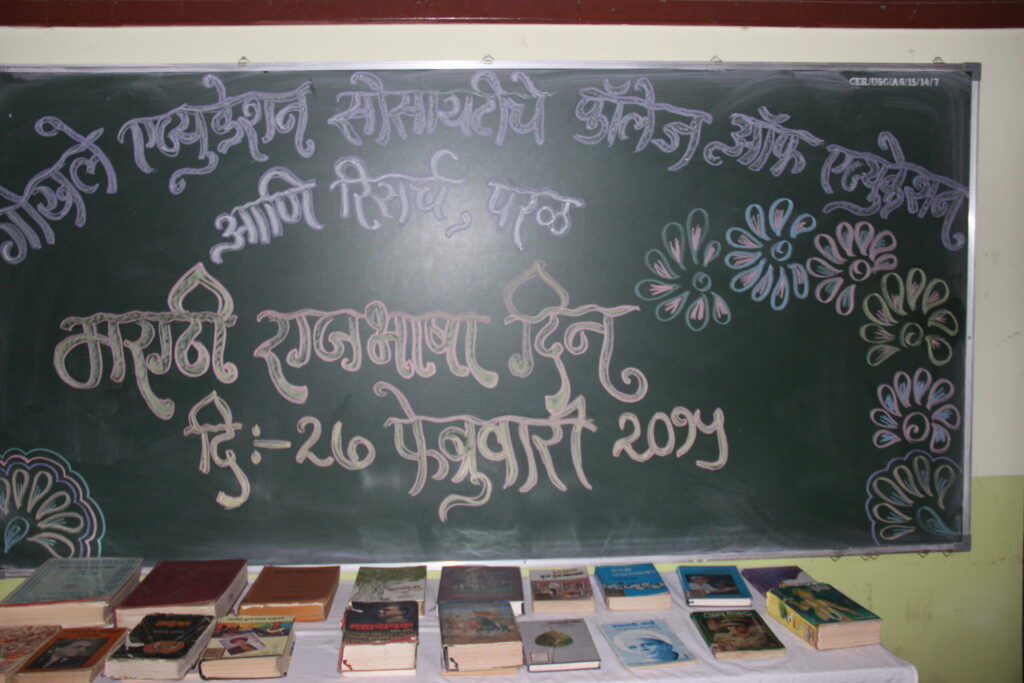 CER/UGC/AS/13/14/7
गोखले एज्युकेशन सोसायटीचे कॉलेज ऑफ एज्युकेशन
आणि रिसर्च, परळ
मराठी राजभाषा दिन
दि:- २७ फेब्रुवारी २०१५